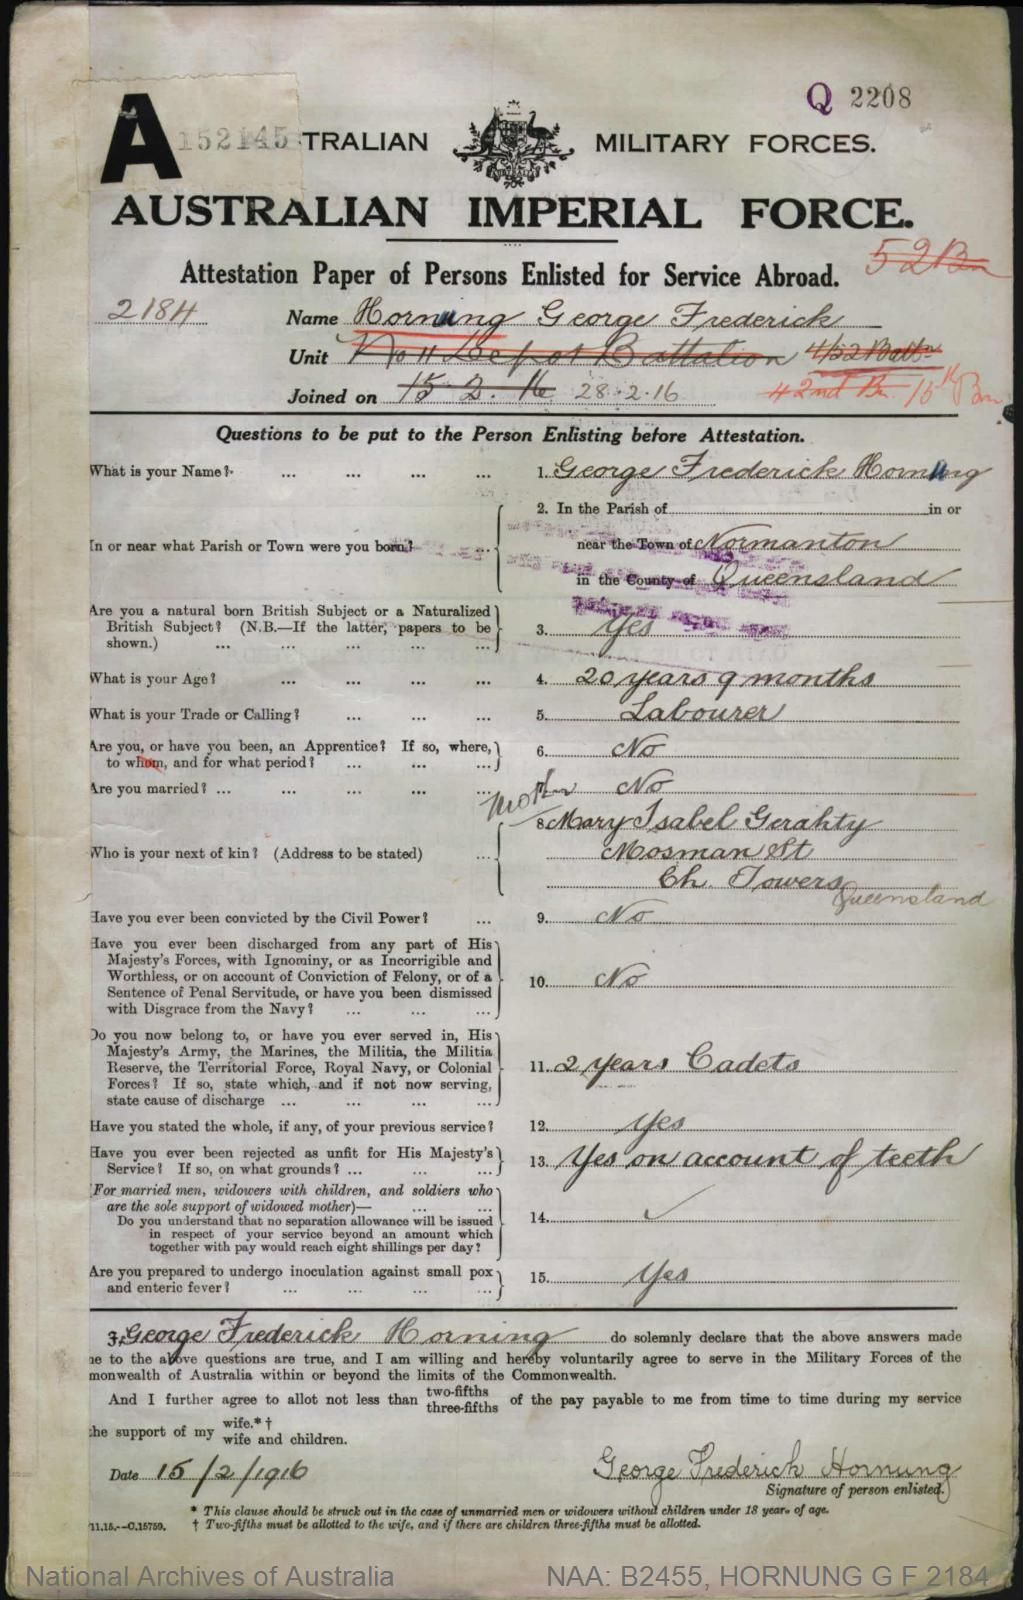 Q 2208
A 152145 TRALIAN MILITARY FORCES.
AUSTRALIAN IMPERIAL FORCE.
52 Bn
Attestation Paper of Persons Enlisted for Service Abroad.
2184
Name Hornung George Frederick
Unit No 11 Depot Battalion 4/52 Battn
Joined on 15 2. 16 28.2.16 42nd Bn. 15th Bn
Questions to be put to the Person Enlisting before Attestation.
What is your Name? ... ... ... ... 1. George Frederick Hornung
2. In the Parish of in or
In or near what Parish or Town were you born? ... near the Town of Normanton
in the County of Queensland
Are you a natural born British Subject or a Naturalized
British Subject? (N.B.—If the latter, papers to be
shown.) ... ... ... ... 3. Yes
What is your Age? ... ... ... 4. 20 years 9 months
What is your Trade or Calling? ... ... ... 5. Labourer
Are you, or have you been, an Apprentice? If so, where,
to whom, and for what period? ... ... ... 6. No
Are you married? ... ... ... ... ... 7. No
Mother
8. Mary Isabel Gerahty
Who is your next of kin? (Address to be stated) ... Mosman St
Ch. Towers
Queensland
Have you ever been convicted by the Civil Power? ... 9. No
Have you ever been discharged from any part of His
Majesty's Forces, with Ignominy, or as Incorrigible and
Worthless, or on account of Conviction of Felony, or of a
Sentence of Penal Servitude, or have you been dismissed
with Disgrace from the Navy? ... ... ... 10. No
Do you now belong to, or have you ever served in, His
Majesty's Army, the Marines, the Militia, the Militia
Reserve, the Territorial Force, Royal Navy, or Colonial
Forces? If so, state which, and if not now serving,
state cause of discharge ... ... ... ... 11. 2 years Cadets
Have you stated the whole, if any, of your previous service? 12. Yes
Have you ever been rejected as unfit for His Majesty's
Service? If so, on what grounds? ... ... ... 13. Yes on account of teeth
(For married men, widowers with children, and soldiers who
are the sole support of widowed mother)— ... ...
Do you understand that no separation allowance will be issued
in respect of your service beyond an amount which
together with pay would reach eight shillings per day? 14. ✓
Are you prepared to undergo inoculation against small pox
and enteric fever? ... ... ... 15. Yes
I, George Frederick Horning do solemnly declare that the above answers made
me to the above questions are true, and I am willing and hereby voluntarily agree to serve in the Military Forces of the
monwealth of Australia within or beyond the limits of the Commonwealth.
And I further agree to allot not less than two-fifths three-fifths of the pay payable to me from time to time during my service
the support of my wife.*† wife and children.
Date 15/2/1916 George Frederick Hornung
Signature of person enlisted.
* This clause should be struck out in the case of unmarried men or widowers without children under 18 years of age.
/11.15.—C.15759. † Two-fifths must be allotted to the wife, and if there are children three-fifths must be allotted.
National Archives of Australia NAA: B2455, HORNUNG G F 2184